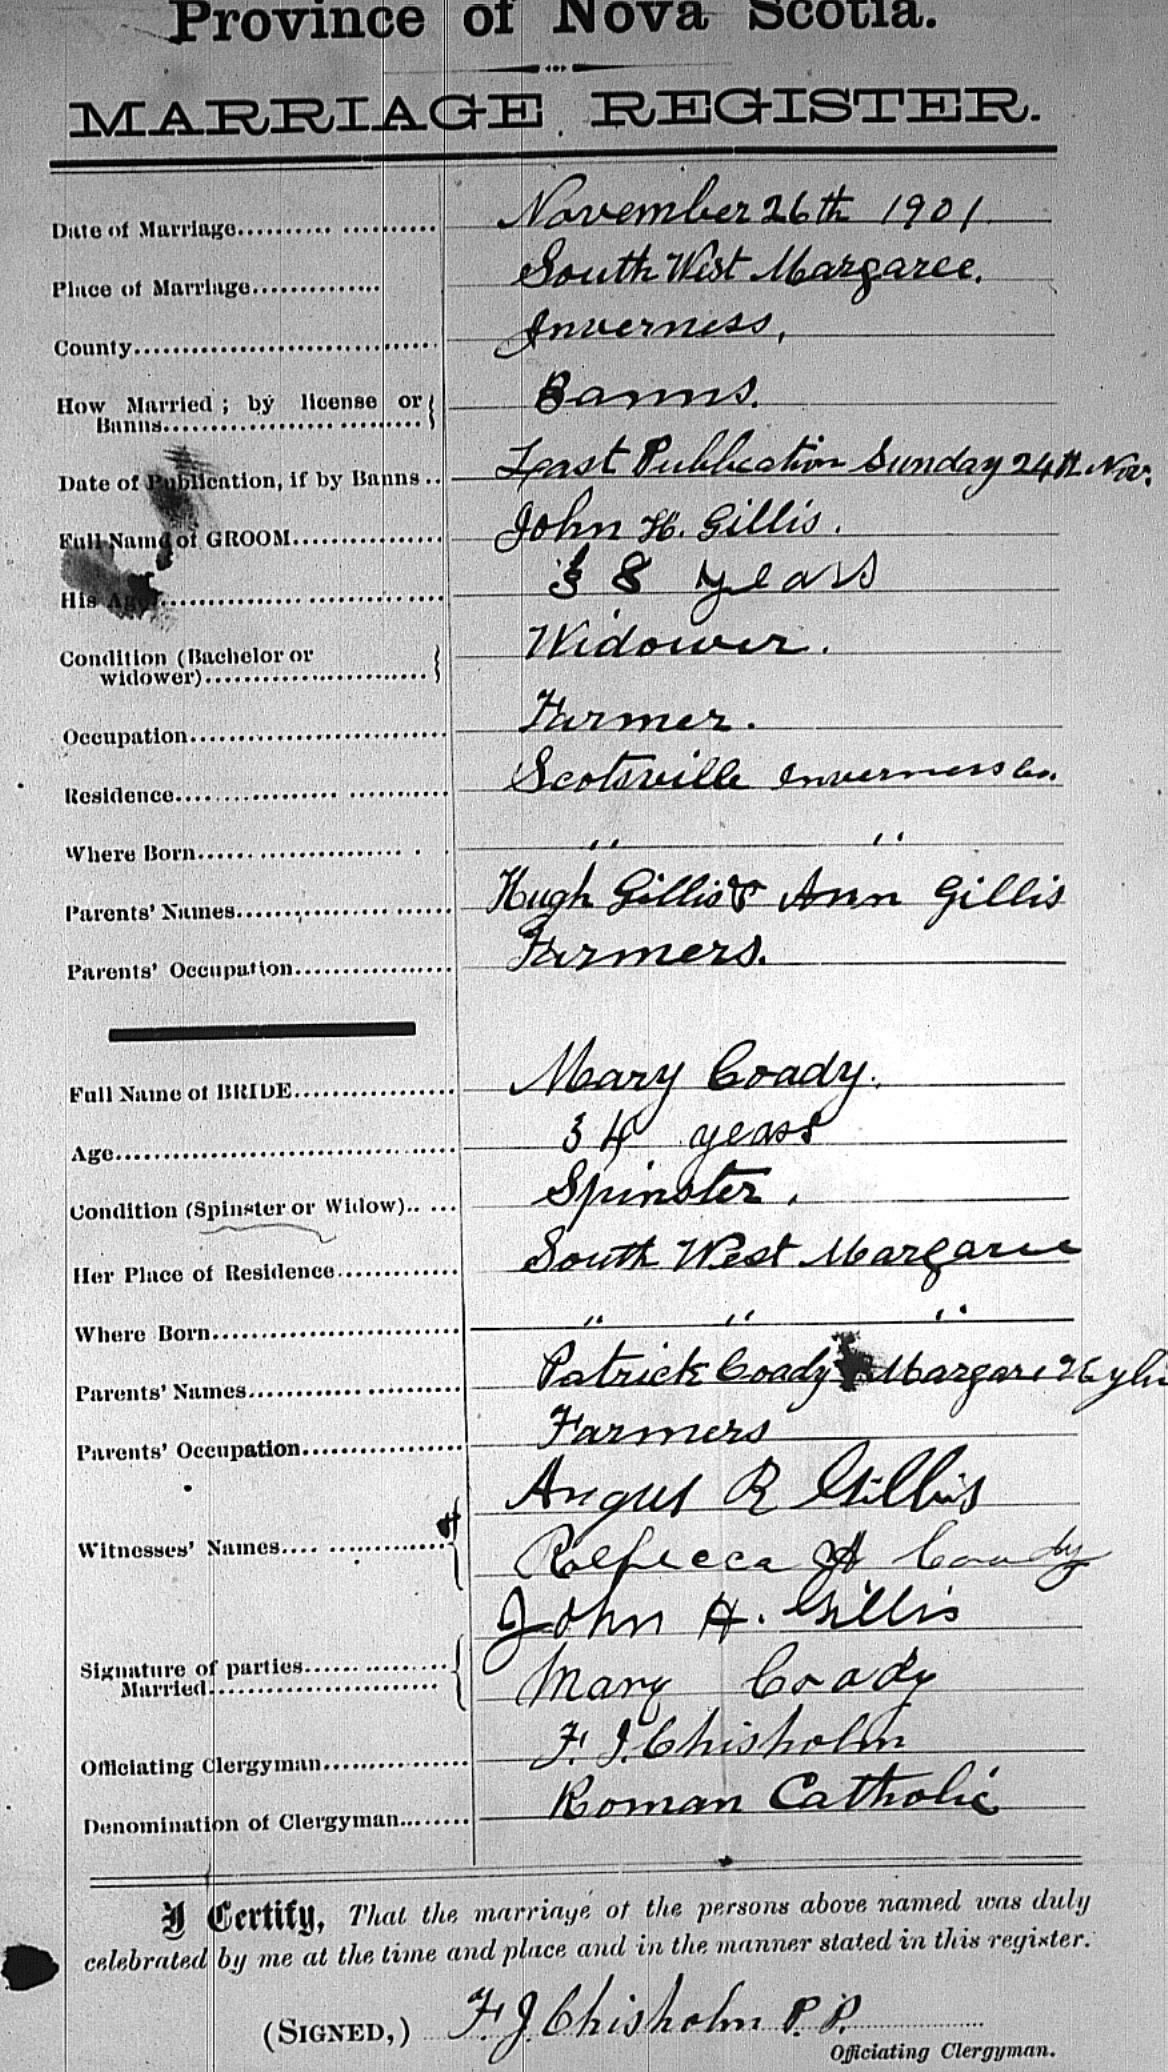 Province of Nova Scotia.
MARRIAGE REGISTER.
Date of Marriage.......... .......... November 26th 1901.
Place of Marriage.............. South West Margaree.
County.................................. Inverness,
How Married ; by license or { Banns.
Banns..............................
Date of Publication, if by Banns .. Last Publication Sunday 24th Nov.
Full Name of GROOM................ John H. Gillis.
His Age................................ 38 years
Condition (Bachelor or } Widower.
widower)..........................
Occupation.............................. Farmer.
Residence................................ Scotsville Inverness Co.
Where Born...... .................. . " "
Parents' Names........................ Hugh Gillis & Ann Gillis
Parents' Occupation.................. Farmers.
Full Name of BRIDE.................. Mary Coady.
Age........................................ 34 years
Condition (Spinster or Widow).. ... Spinster.
Her Place of Residence............. South West Margaree
Where Born............................. " " "
Parents' Names........................ Patrick Coady Margaret
Parents' Occupation.................. Farmers
Angus R Gillis
Witnesses' Names.... ................ { Rebecca A Coady
John H. Gillis
Signature of parties.................. {
Married........................... Mary Coady
Officiating Clergyman............... F. J. Chisholm
Denomination of Clergyman........ Roman Catholic
I Certify, That the marriage of the persons above named was duly
celebrated by me at the time and place and in the manner stated in this register.
(SIGNED,) F. J. Chisholm P. P.
Officiating Clergyman.